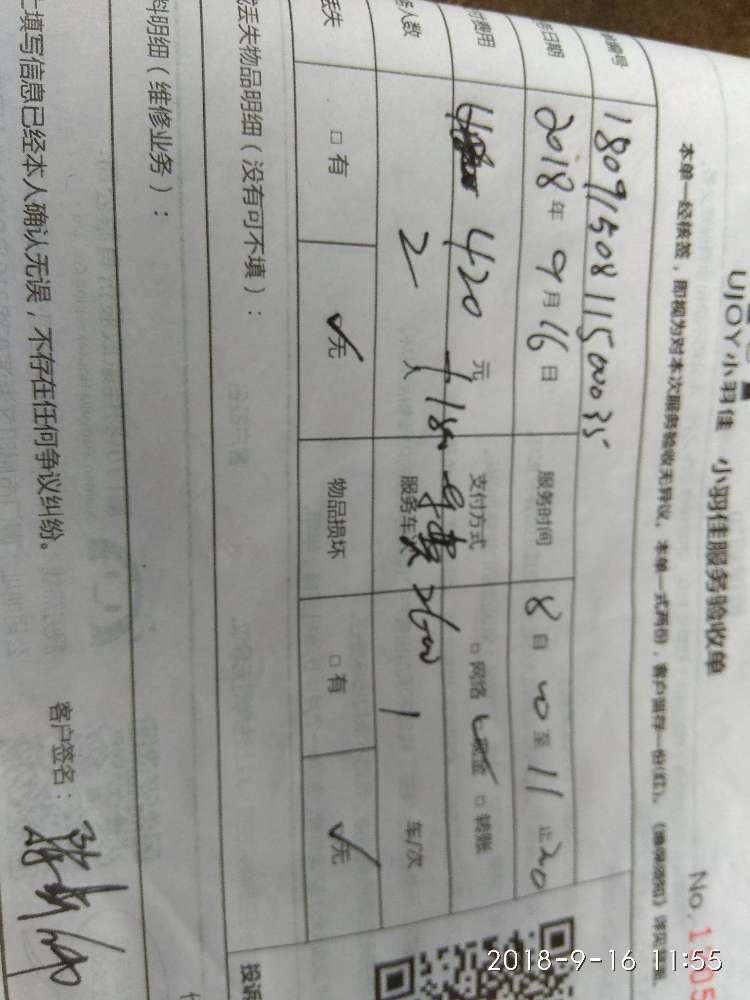 UJOY小羽佳 小羽佳服务验收单
No.
本单一经核签，即视为对本次服务验收无异议。本单一式两份，客户留存一份(红)。
编号 180911508115000035
日期 2018年9月16日 服务时间 8 00至11 20
费用 420元 支付方式 □网络 ✓现金 □转账
人数 2人 服务车次 1 车/次
丢失 □有 ✓无 物品损坏 □有 ✓无
丢失物品明细（没有可不填）：
料明细（维修业务）：
投诉
上填写信息已经本人确认无误，不存在任何争议纠纷。 客户签名：
2018-9-16 11:55